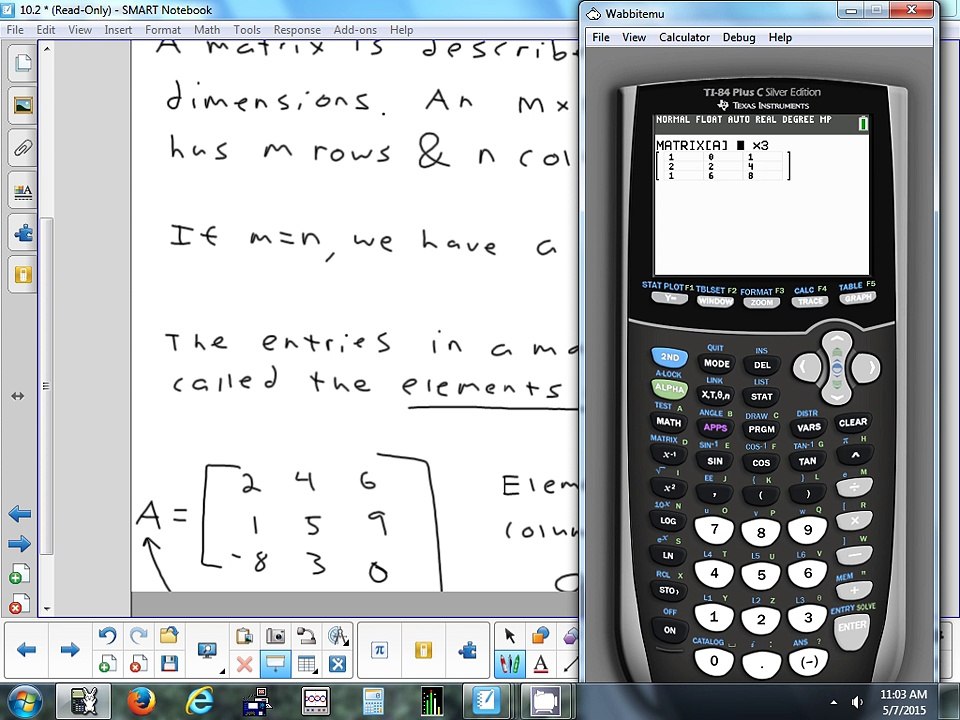 10.2 * (Read-Only) - SMART Notebook
File Edit View Insert Format Math Tools Response Add-ons Help
A matrix is describe
dimensions. An m×
has m rows & n col
If m=n, we have a
The entries in a ma
called the elements
A = 2 4 6
1 5 9
-8 3 0
Elem
colum
Wabbitemu
File View Calculator Debug Help
TI-84 Plus C Silver Edition
TEXAS INSTRUMENTS
NORMAL FLOAT AUTO REAL DEGREE MP
MATRIX[A] ×3
1 0 1
2 2 4
1 6 8
STAT PLOT F1 TBLSET F2 FORMAT F3 CALC F4 TABLE F5
Y= WINDOW ZOOM TRACE GRAPH
QUIT INS
2ND MODE DEL
A-LOCK LINK LIST
ALPHA X,T,θ,n STAT
TEST A ANGLE B DRAW C DISTR
MATH APPS PRGM VARS CLEAR
MATRIX D SIN⁻¹ E COS⁻¹ F TAN⁻¹ G π H
x⁻¹ SIN COS TAN ^
√ I EE J { K } L e M
x² , ( ) ÷
10ˣ N u O v P w Q [ R
LOG 7 8 9 ×
eˣ S L4 T L5 U L6 V ] W
LN 4 5 6 −
RCL X L1 Y L2 Z L3 θ MEM "
STO› 1 2 3 +
OFF CATALOG ⎵ i : ANS ? ENTRY SOLVE
ON 0 . (-) ENTER
11:03 AM
5/7/2015